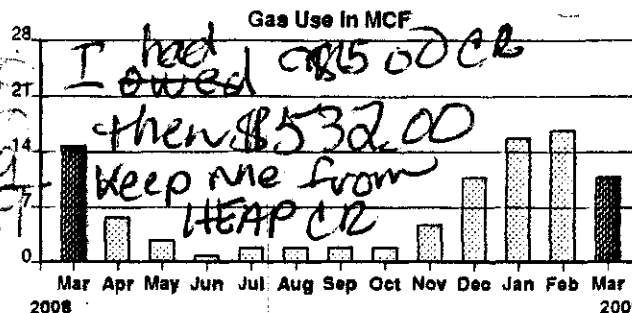 Gas Use in MCF
28
21
14
7
0
I had
owed a $15 00 CR
then $532.00
Keep me from
HEAP CR
Mar Apr May Jun Jul Aug Sep Oct Nov Dec Jan Feb Mar
2008 200